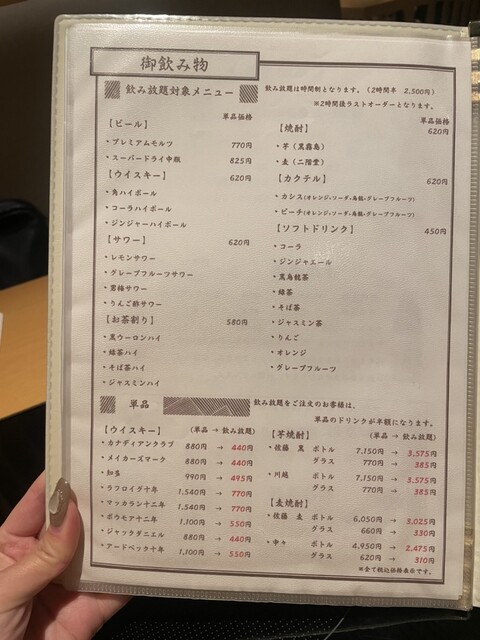 御飲み物
飲み放題対象メニュー
飲み放題は時間制となります。(2時間半 2,500円)
※2時間後ラストオーダーとなります。
単品価格
【ビール】
・プレミアムモルツ 770円
・スーパードライ中瓶 825円
【ウイスキー】 620円
・角ハイボール
・コーラハイボール
・ジンジャーハイボール
【サワー】 620円
・レモンサワー
・グレープフルーツサワー
・男梅サワー
・りんご酢サワー
【お茶割り】 580円
・黒ウーロンハイ
・緑茶ハイ
・そば茶ハイ
・ジャスミンハイ
単品価格
【焼酎】 620円
・芋(黒霧島)
・麦(二階堂)
【カクテル】 620円
・カシス(オレンジ・ソーダ・烏龍・グレープフルーツ)
・ピーチ(オレンジ・ソーダ・烏龍・グレープフルーツ)
【ソフトドリンク】 450円
・コーラ
・ジンジャエール
・黒烏龍茶
・緑茶
・そば茶
・ジャスミン茶
・りんご
・オレンジ
・グレープフルーツ
単品
飲み放題をご注文のお客様は、
単品のドリンクが半額になります。
【ウイスキー】 (単品 → 飲み放題)
・カナディアンクラブ 880円 → 440円
・メイカーズマーク 880円 → 440円
・知多 990円 → 495円
・ラフロイグ十年 1,540円 → 770円
・マッカラン十二年 1,540円 → 770円
・ボウモア十二年 1,100円 → 550円
・ジャックダニエル 880円 → 440円
・アードベック十年 1,100円 → 550円
【芋焼酎】 (単品 → 飲み放題)
・佐藤 黒 ボトル 7,150円 → 3,575円
グラス 770円 → 385円
・川越 ボトル 7,150円 → 3,575円
グラス 770円 → 385円
【麦焼酎】
・佐藤 麦 ボトル 6,050円 → 3,025円
グラス 660円 → 330円
・中々 ボトル 4,950円 → 2,475円
グラス 620円 → 310円
※全て税込価格表示です。